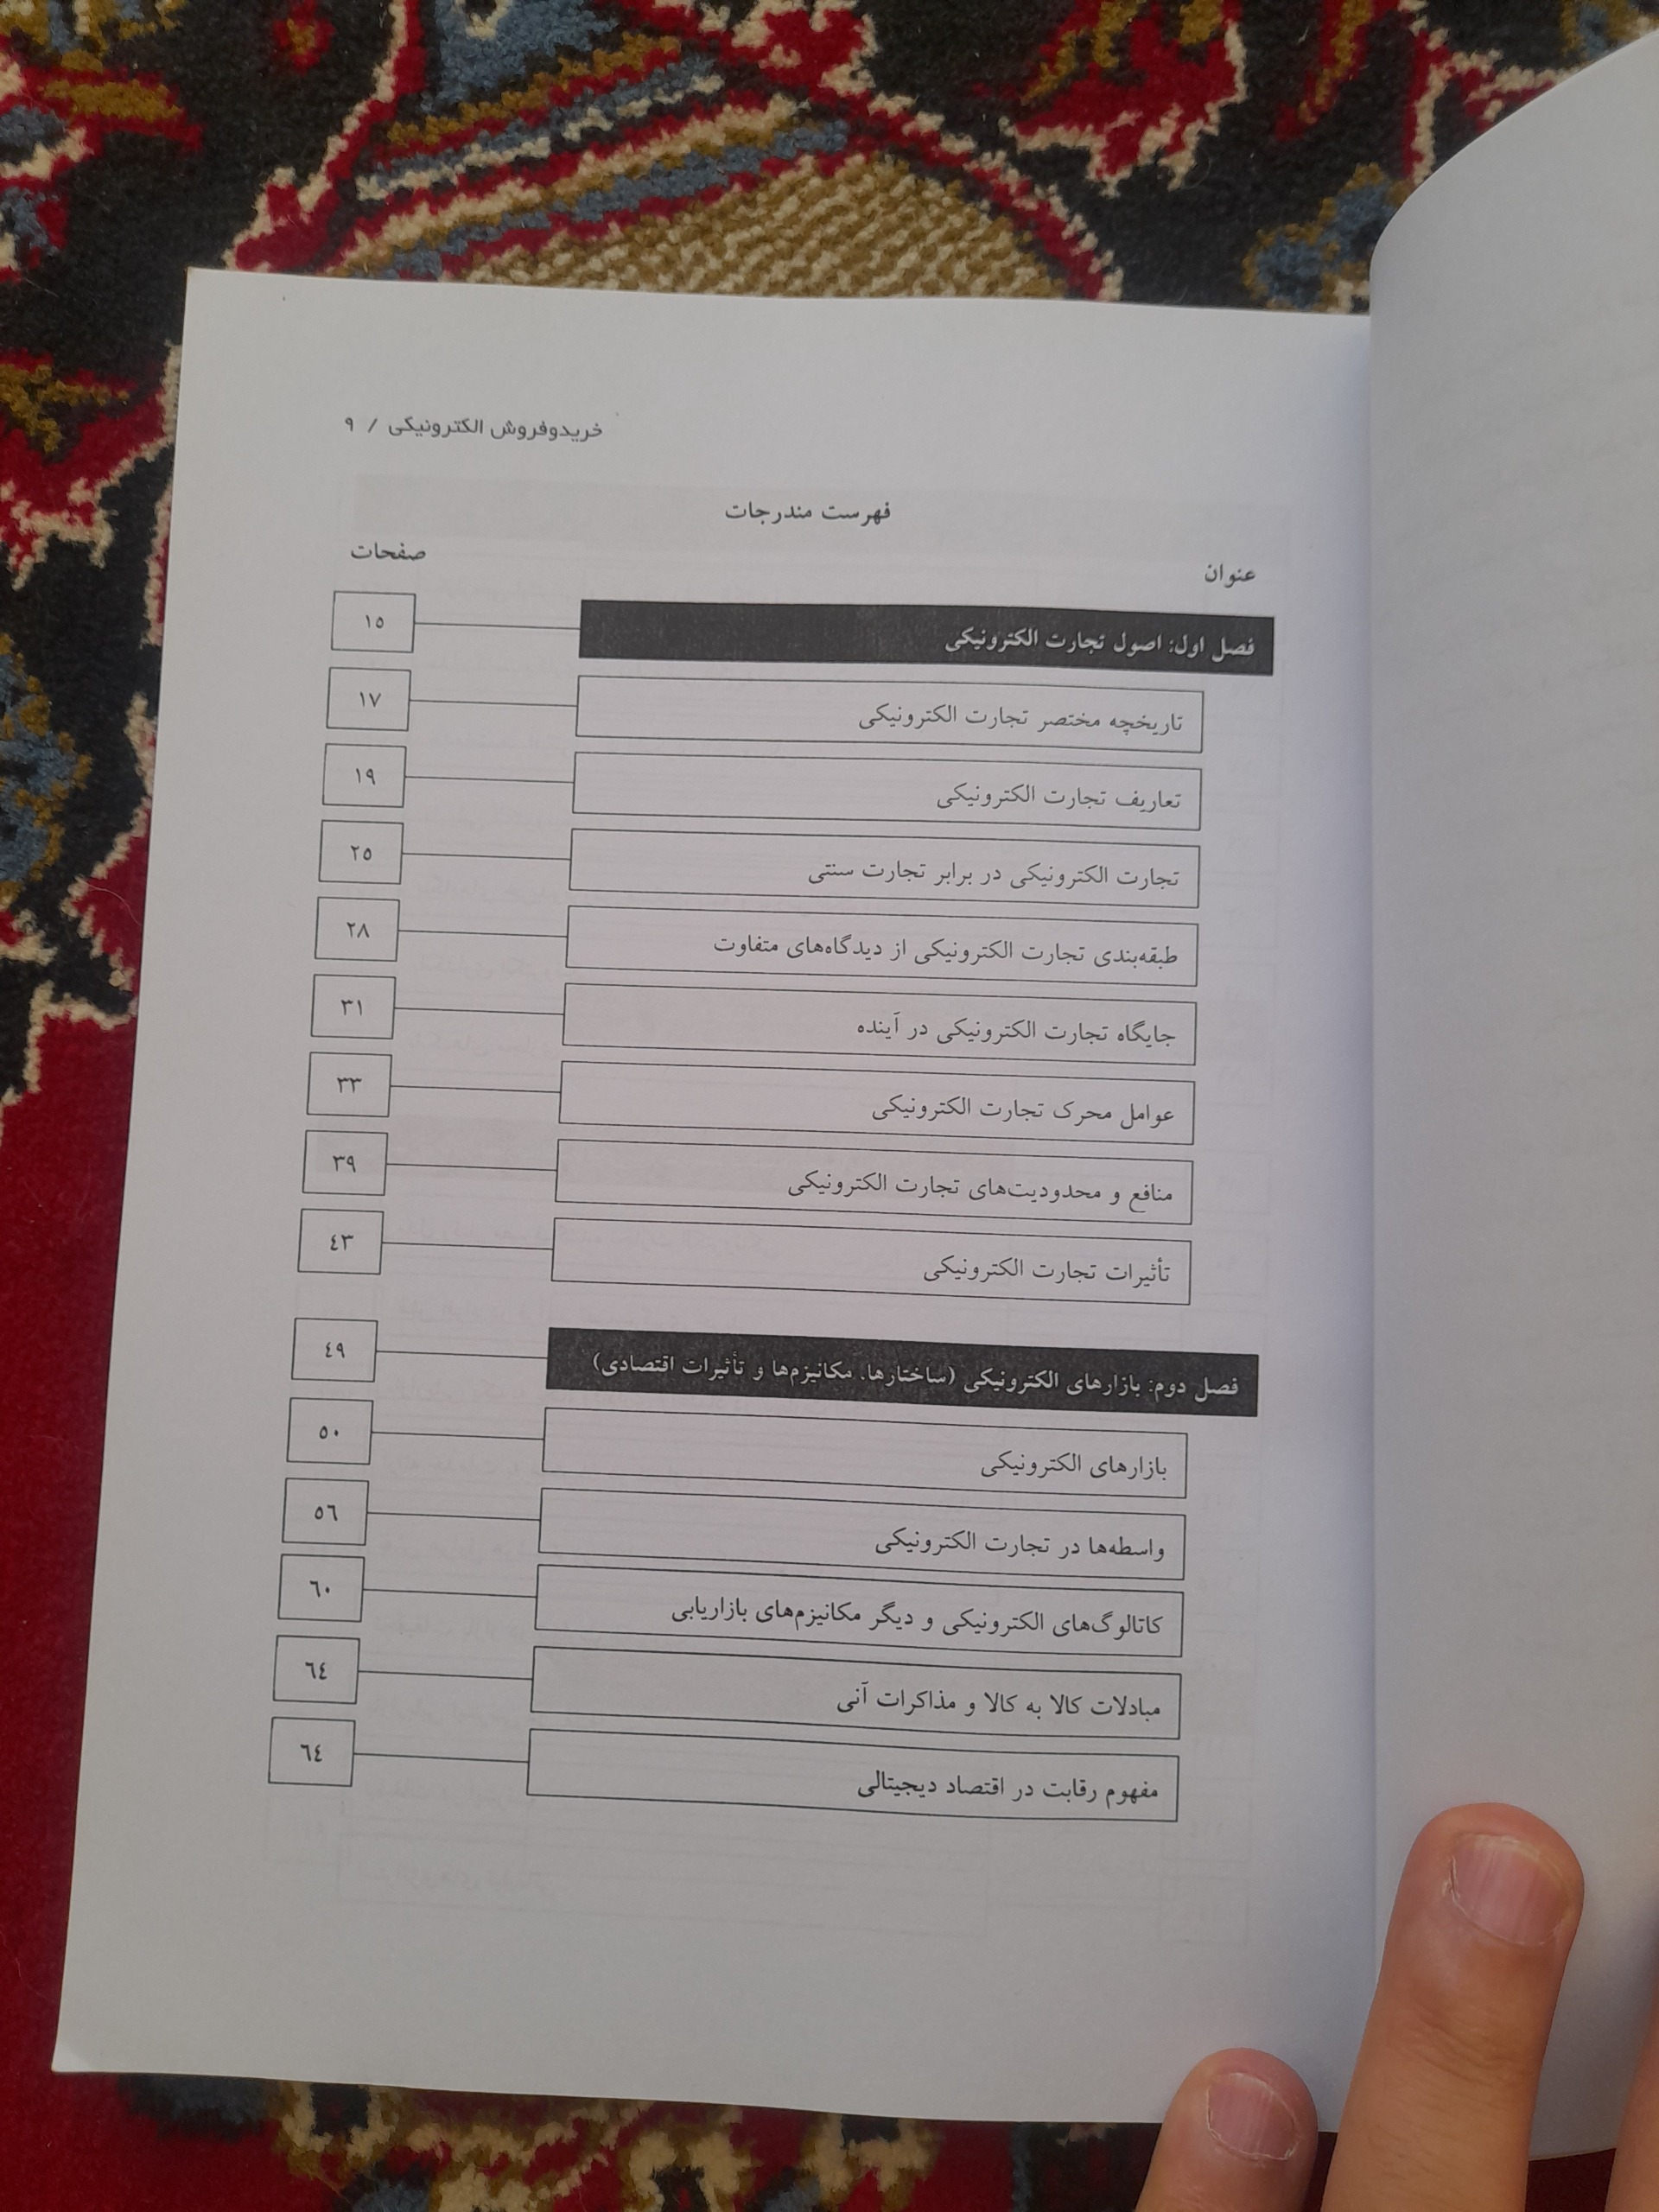 خریدوفروش الکترونیکی / ۹
فهرست مندرجات
عنوان صفحات
فصل اول: اصول تجارت الکترونیکی ۱۵
تاریخچه مختصر تجارت الکترونیکی ۱۷
تعاریف تجارت الکترونیکی ۱۹
تجارت الکترونیکی در برابر تجارت سنتی ۲۵
طبقه‌بندی تجارت الکترونیکی از دیدگاه‌های متفاوت ۲۸
جایگاه تجارت الکترونیکی در آینده ۳۱
عوامل محرک تجارت الکترونیکی ۳۳
منافع و محدودیت‌های تجارت الکترونیکی ۳۹
تأثیرات تجارت الکترونیکی ٤۳
فصل دوم: بازارهای الکترونیکی (ساختارها، مکانیزم‌ها و تأثیرات اقتصادی) ٤۹
بازارهای الکترونیکی ۵۰
واسطه‌ها در تجارت الکترونیکی ۵٦
کاتالوگ‌های الکترونیکی و دیگر مکانیزم‌های بازاریابی ٦۰
مبادلات کالا به کالا و مذاکرات آنی ٦٤
مفهوم رقابت در اقتصاد دیجیتالی ٦٤